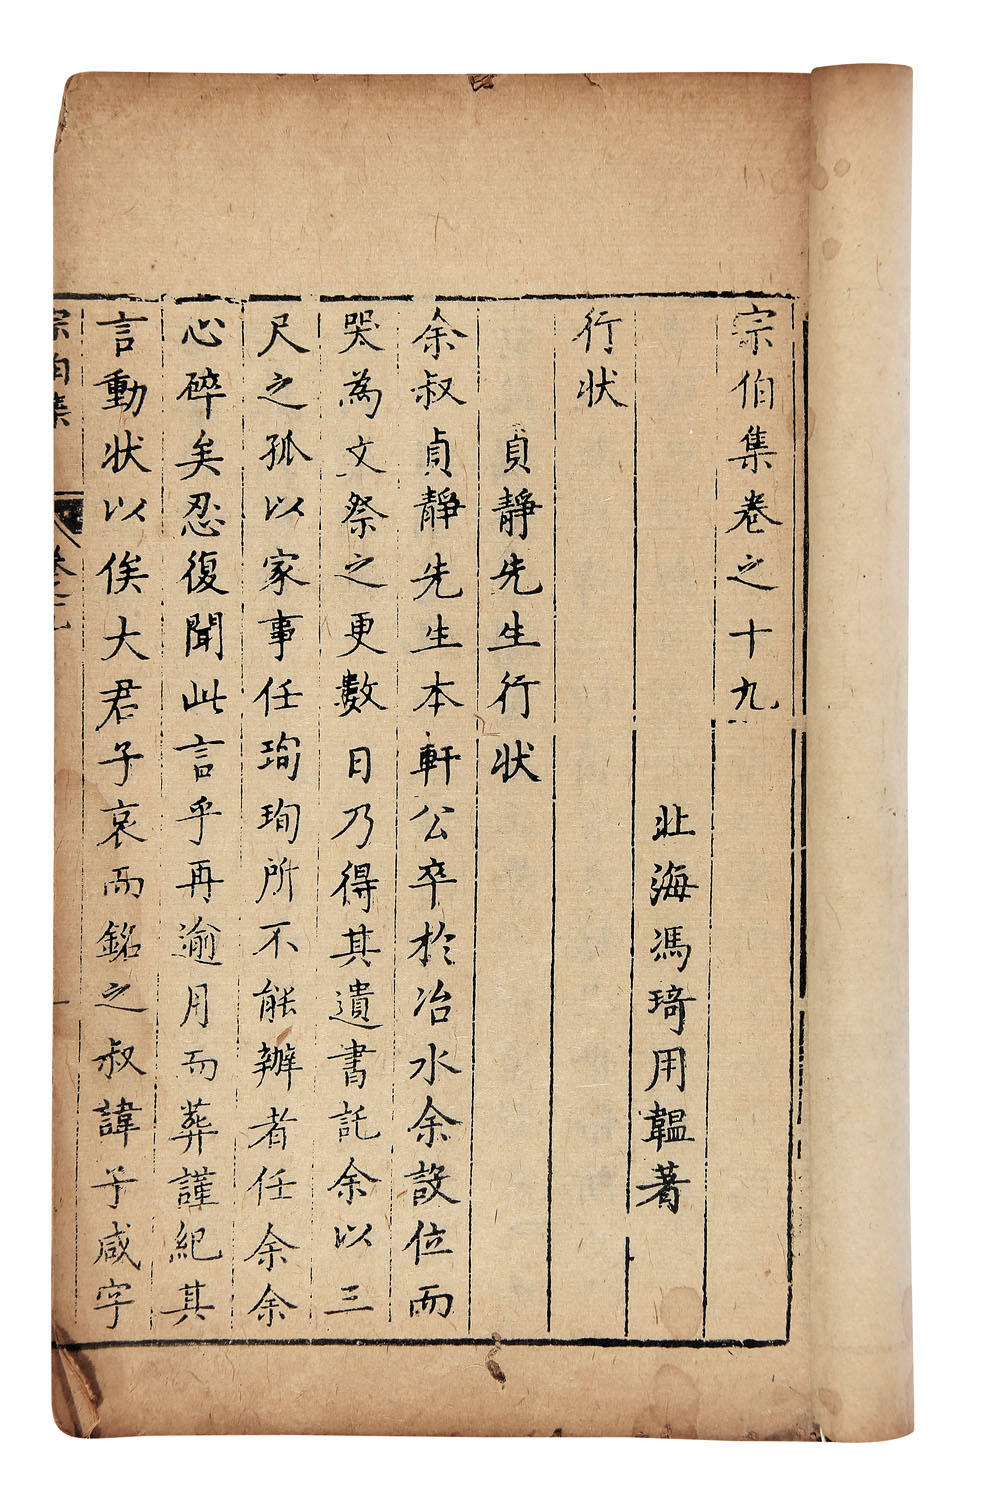 宗伯集卷之十九
北海馮琦用韞著
行狀
貞靜先生行狀
余叔貞靜先生本軒公卒於冶水余設位而
哭為文祭之更數日乃得其遺書託余以三
尺之孤以家事任珣珣所不能辦者任余余
心碎矣忍復聞此言乎再逾月而葬謹紀其
言動狀以俟大君子哀而銘之叔諱子咸字
宗伯集